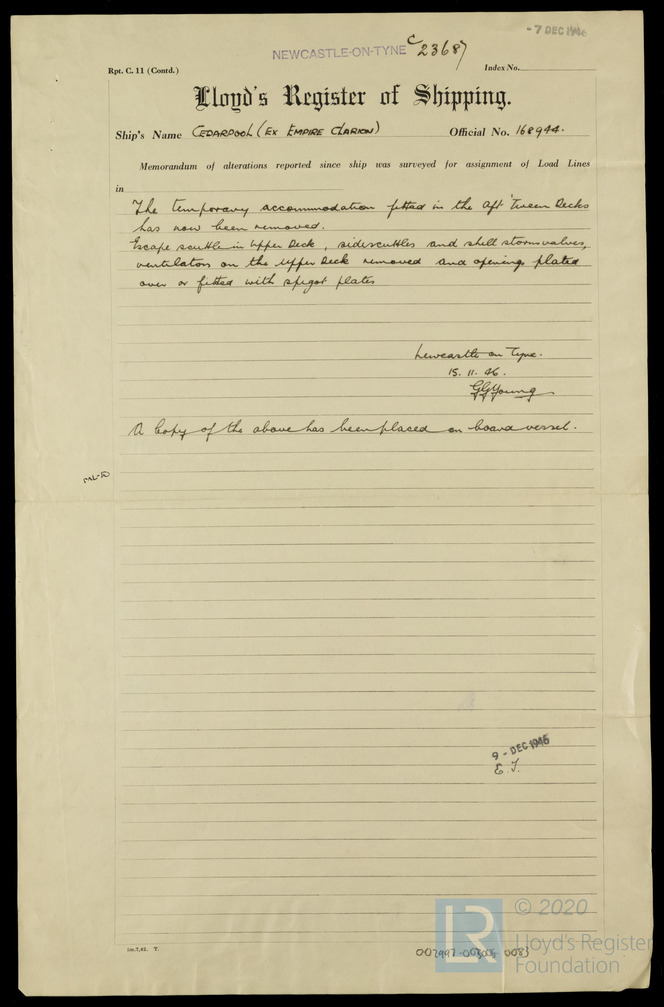 - 7 DEC 1946
NEWCASTLE-ON-TYNE C 23687
Rpt. C. 11 (Contd.) Index No.
Lloyd's Register of Shipping.
Ship's Name CEDARPOOL (EX EMPIRE CLARION) Official No. 168944.
Memorandum of alterations reported since ship was surveyed for assignment of Load Lines
in
The temporary accommodation fitted in the aft 'Tween Decks
has now been removed.
Escape scuttle in Upper Deck, sidescuttles and shell storm valves,
ventilators on the Upper Deck removed and openings plated
over or fitted with spigot plates
Newcastle on Tyne.
15. 11. 46.
GGYoung
A Copy of the above has been placed on board vessel.
9 - DEC 1946
E.J.
1m.7,42. T.
002997-003006 0083
© 2020
LR
Lloyd's Register
Foundation